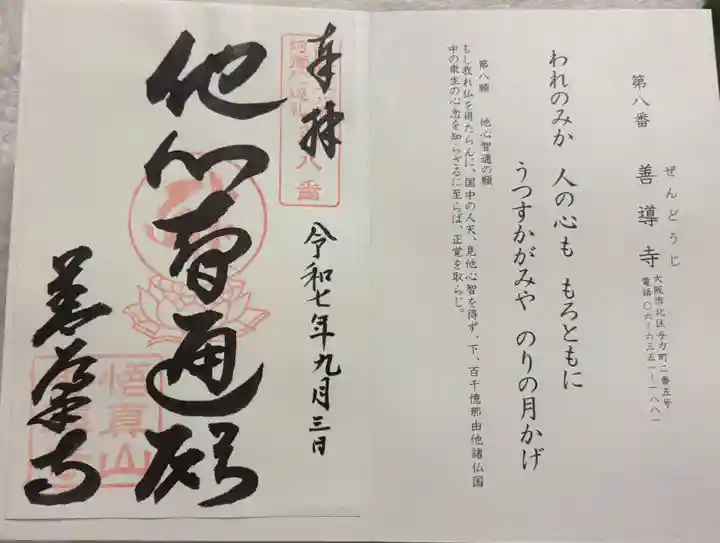 第八番
善導寺
ぜんどうじ
大阪市北区与力町二番五号
電話〇六ー六三五一ー一八八一
われのみか 人の心も もろともに
うつすかがみや のりの月かげ
第八願 他心智通の願
もし我れ仏を得たらんに、国中の人天、見他心智を得ず、下、百千億那由他諸仏国
中の衆生の心念を知らざるに至らば、正覚を取らじ。
奉拝
八番
令和七年九月三日
他心智通願
善導寺
悟真山